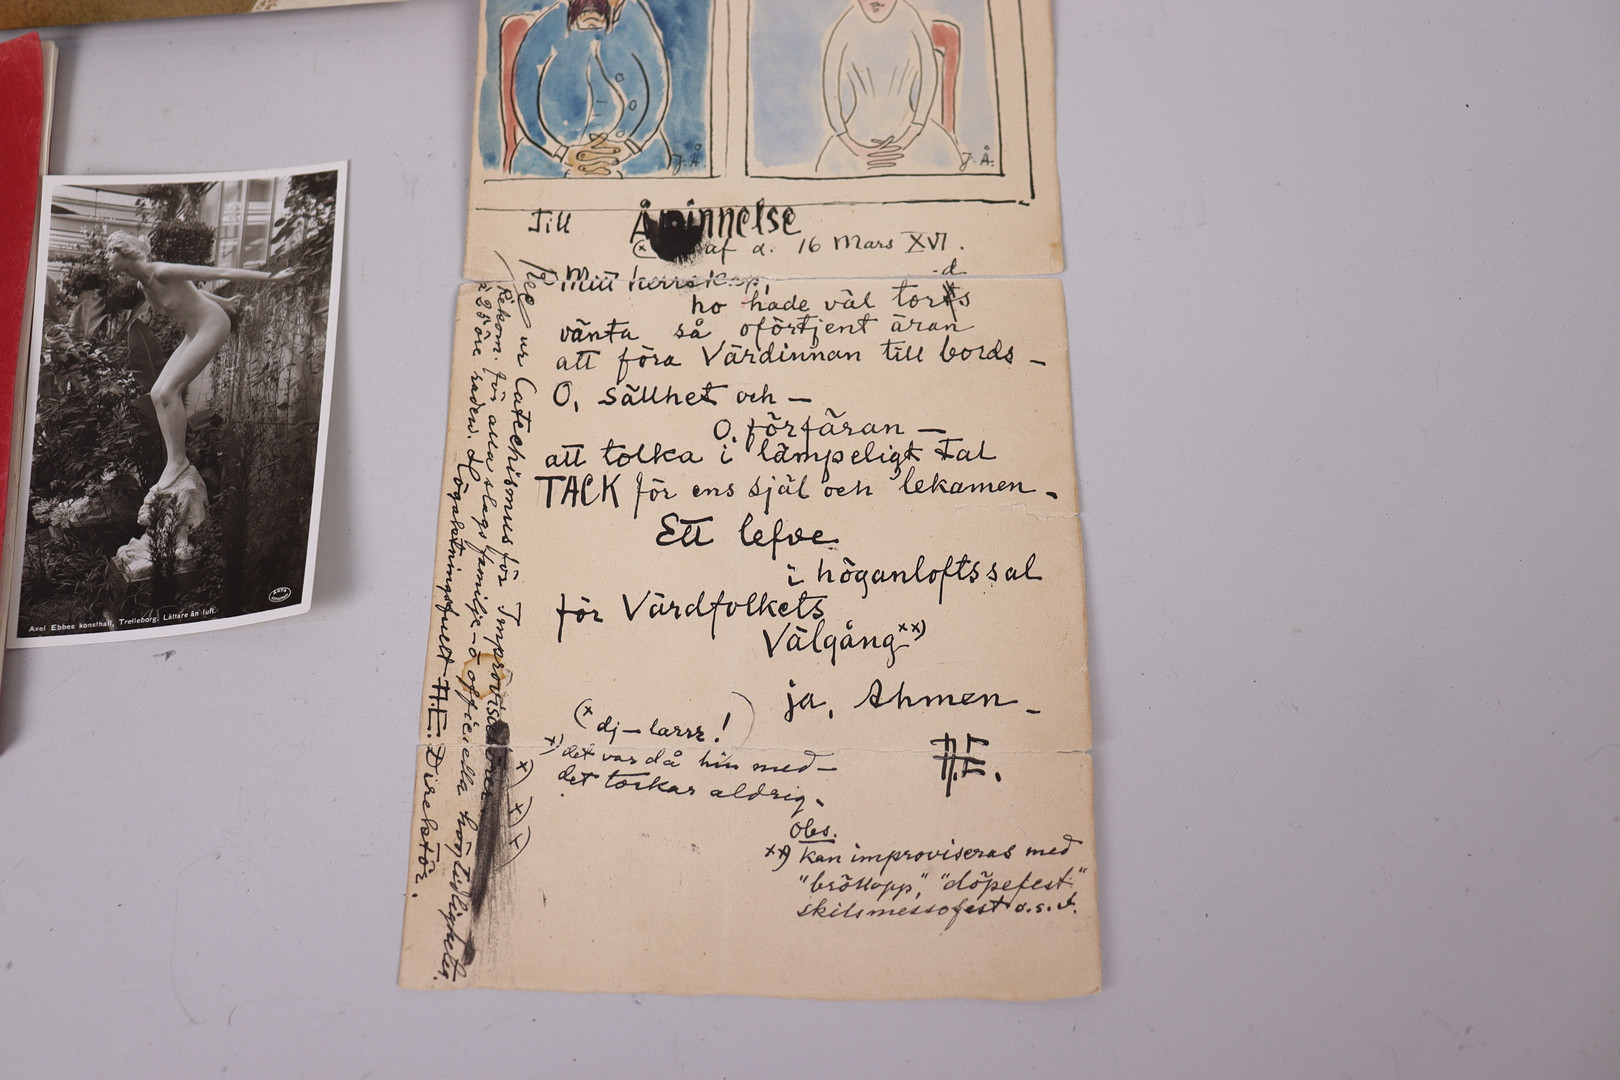 J.Å.
J.Å.
Till Åminnelse
(x af d. 16 Mars XVI.
Mitt herrskap,
d
ho hade väl torts
vänta så oförtjent äran
att föra Värdinnan till bords –
O, sällhet och –
O, förfäran –
att tolka i lämpeligt Tal
TACK för ens själ och lekamen.
Ett lefve
i höganloftssal
för Värdfolkets
Välgång xx)
ja, Ahmen –
Æ.
(x dj–larrr!)
x) det var då hin med–
det torkar aldrig.
Obs.
xx) kan improviseras med
"bröllopp", "döpefest"
skilsmessofest o.s.v.
ur Catechismus för Improvisationer x) x) x)
Rekom. för alla slags familje- o officiella högtidligheter
à 25 öre raden. Högaktningsfullt A.E. Direktör.
Axel Ebbes konsthall, Trelleborg. Lättare än luft.